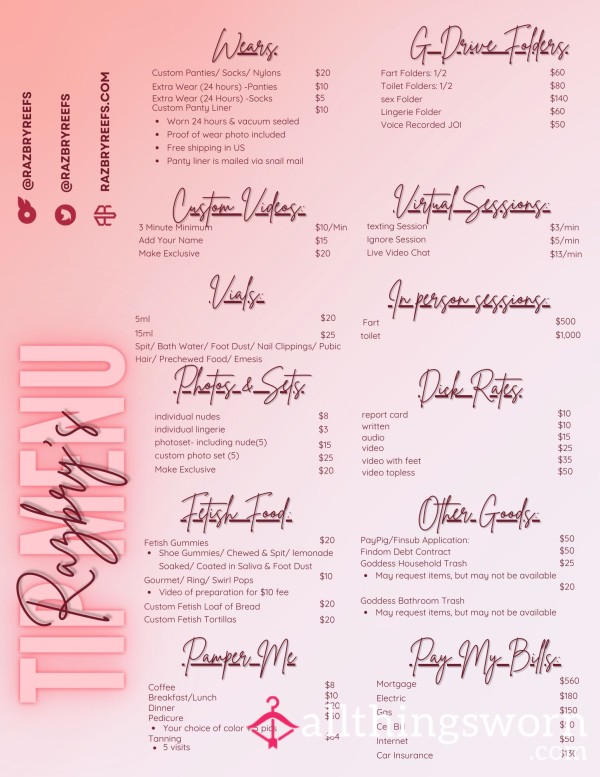 @RAZBRYREEFS
@RAZBRYREEFS
RAZBRYREEFS.COM
TIP MENU
Razbry's
Wears:
Custom Panties/ Socks/ Nylons $20
Extra Wear (24 Hours) -Panties $10
Extra Wear (24 Hours) -Socks $5
Custom Panty Liner $10
• Worn 24 hours & vacuum sealed
• Proof of wear photo included
• Free shipping in US
• Panty liner is mailed via snail mail
Custom Videos:
3 Minute Minimum $10/Min
Add Your Name $15
Make Exclusive $20
Vials:
5ml $20
15ml $25
Spit/ Bath Water/ Foot Dust/ Nail Clippings/ Pubic
Hair/ Prechewed Food/ Emesis
Photos & Sets:
individual nudes $8
individual lingerie $3
photoset- including nude(5) $15
custom photo set (5) $25
Make Exclusive $20
Fetish Food:
Fetish Gummies $20
• Shoe Gummies/ Chewed & Spit/ lemonade
Soaked/ Coated in Saliva & Foot Dust
Gourmet/ Ring/ Swirl Pops $10
• Video of preparation for $10 fee
Custom Fetish Loaf of Bread $20
Custom Fetish Tortillas $20
Pamper Me
Coffee $8
Breakfast/Lunch $10
Dinner
Pedicure
• Your choice of color
Tanning
• 5 visits
G-Drive Folders:
Fart Folders: 1/2 $60
Toilet Folders: 1/2 $80
sex Folder $140
Lingerie Folder $60
Voice Recorded JOI $50
Virtual Sessions:
texting Session $3/min
Ignore Session $5/min
Live Video Chat $13/min
In person sessions:
Fart $500
toilet $1,000
Dick Rates:
report card $10
written $10
audio $15
video $25
video with feet $35
video topless $50
Other Goods:
PayPig/Finsub Application: $50
Findom Debt Contract $50
Goddess Household Trash $25
• May request items, but may not be available
$20
Goddess Bathroom Trash
• May request items, but may not be available
Pay My Bills:
Mortgage $560
Electric $180
Gas $150
Internet $50
Car Insurance
allthingsworn
.com